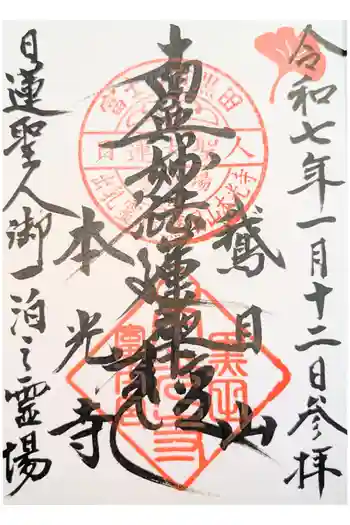 令和七年一月十二日参拝
鵞目山
南無妙法蓮華経
本光寺
日蓮聖人御一泊之霊場